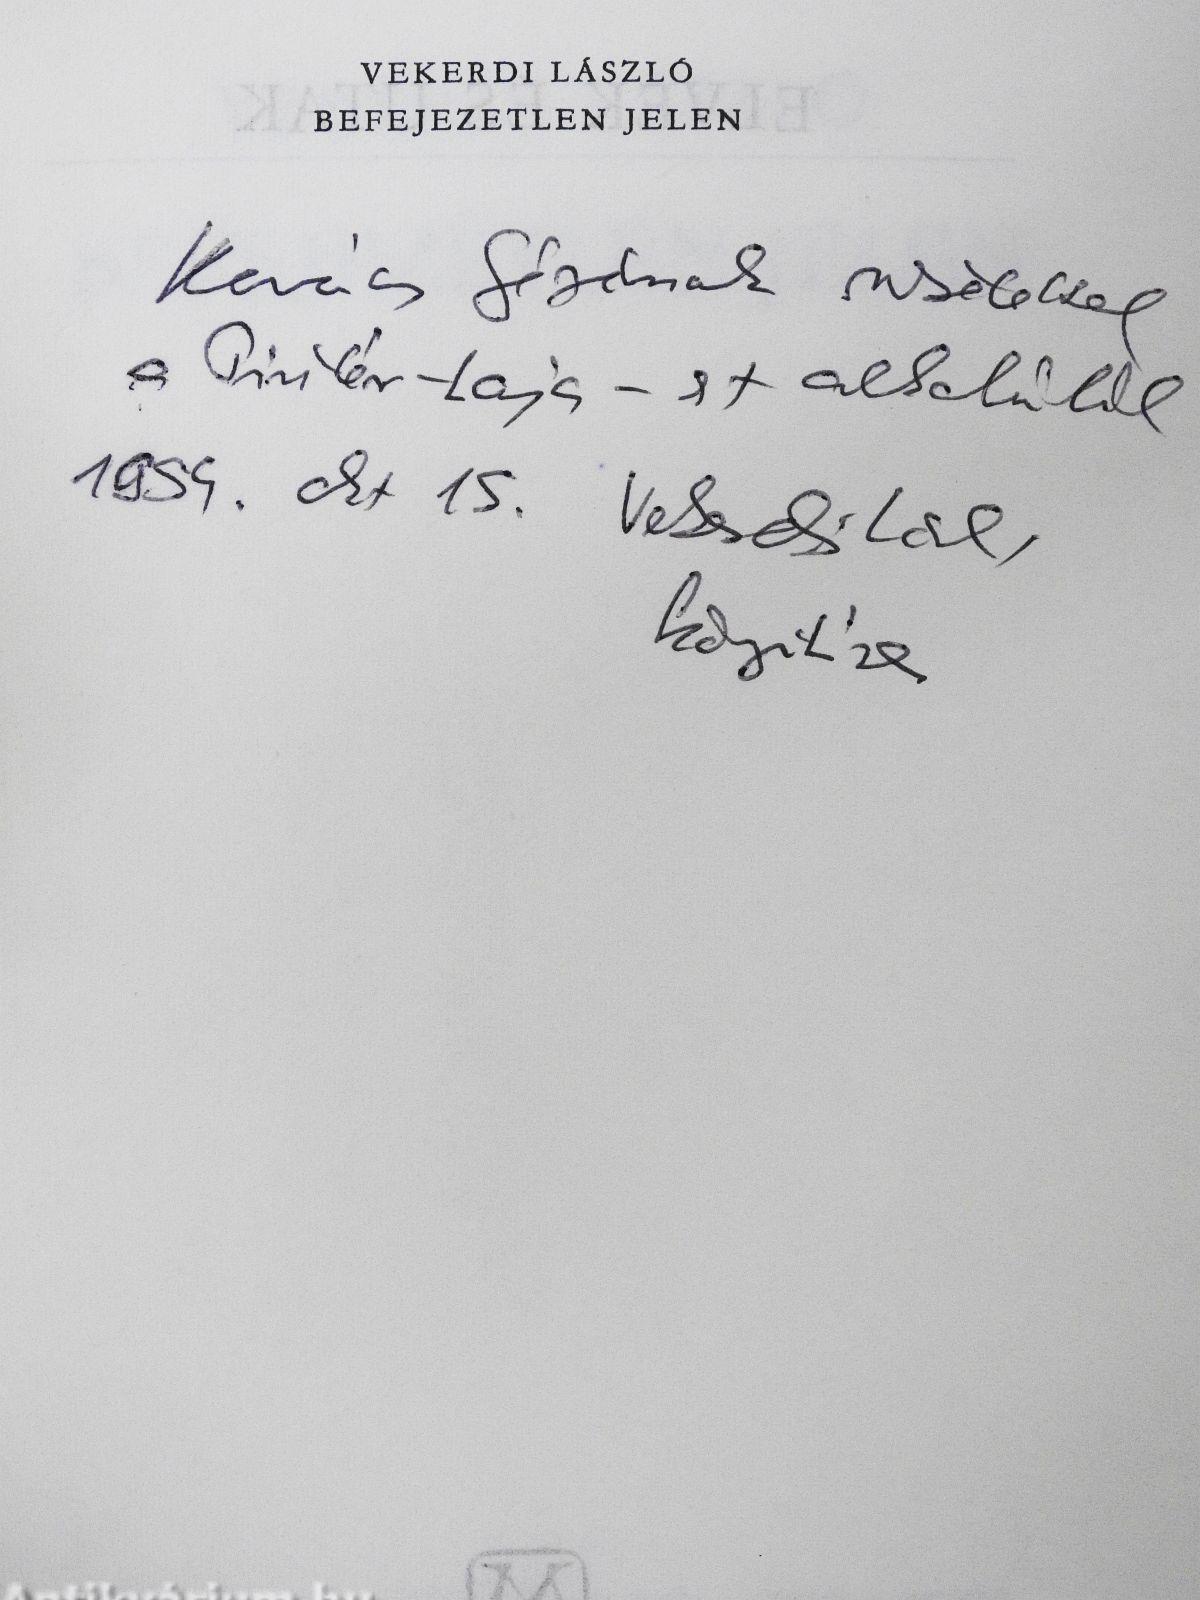 VEKERDI LÁSZLÓ
BEFEJEZETLEN JELEN
ELVEK ÉS UTAK
Kovács Gézának tisztelettel
a Pintér-Lajos - est alkalmából
okt 15.
Vekerdi László,
Antikvárium.hu